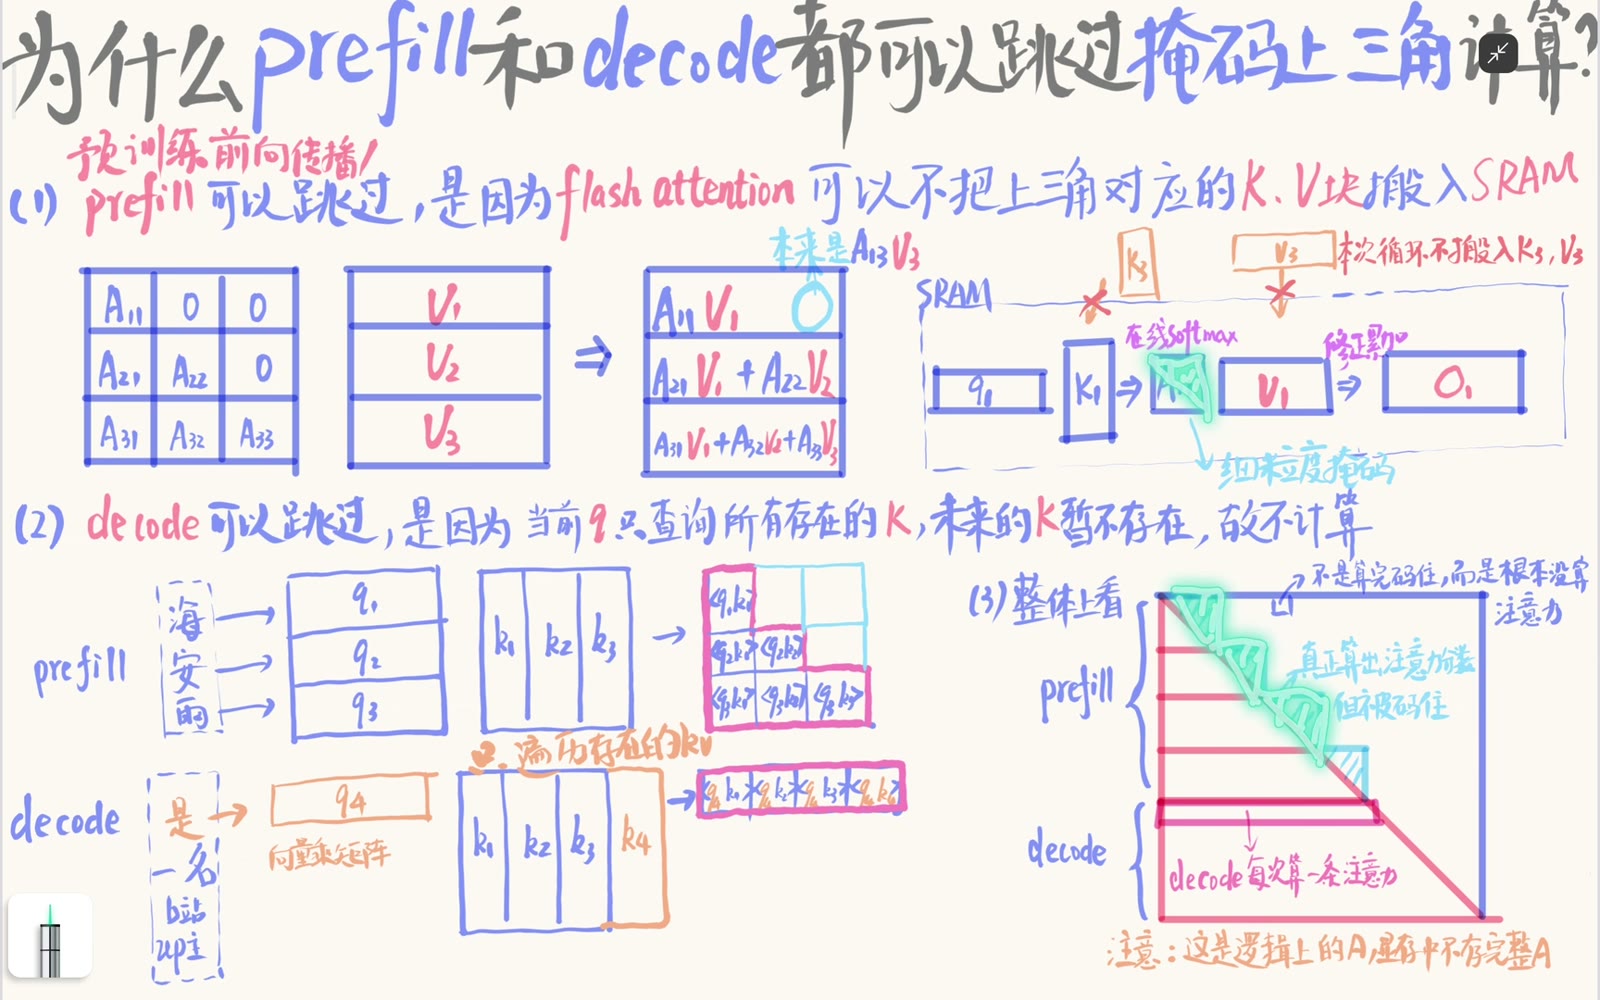 为什么prefill和decode都可以跳过掩码上三角计算?
预训练前向传播/
(1) prefill 可以跳过,是因为flash attention 可以不把上三角对应的K、V块搬入SRAM
本来是A13V3
K3
V3
本次循环不搬入K3,V3
SRAM
A11 0 0
A21 A22 0
A31 A32 A33
V1
V2
V3
⇒
A11V1 0
A21V1+A22V2
A31V1+A32V2+A33V3
在线softmax
修正累加
q1
K1
⇒
V1
⇒
O1
细粒度掩码
(2) decode 可以跳过,是因为 当前q只查询所有存在的K,未来的K暂不存在,故不计算
prefill
海
安
雨
q1
q2
q3
k1 k2 k3
<q1k1>
<q2k1> <q2k2>
<q3k1> <q3k2> <q3k3>
decode
是
一名
b站
up主
q4
向量乘矩阵
遍历存在的kv
k1 k2 k3 k4
<q4k1> <q4k2> <q4k3> <q4k4>
(3) 整体上看
不是算完码住,而是根本没算
注意力
prefill
真正算出注意力分数
但被码住
decode
decode每次算一条注意力
注意:这是逻辑上的A,显存中不存完整A